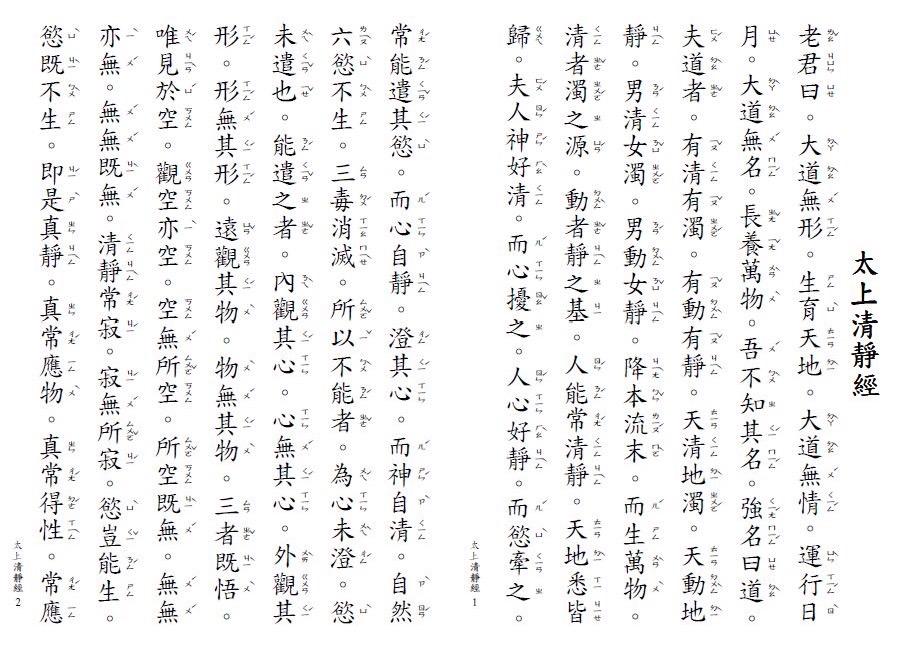 太上清靜經
老君曰。大道無形。生育天地。大道無情。運行日
月。大道無名。長養萬物。吾不知其名。強名曰道。
夫道者。有清有濁。有動有靜。天清地濁。天動地
靜。男清女濁。男動女靜。降本流末。而生萬物。
清者濁之源。動者靜之基。人能常清靜。天地悉皆
歸。夫人神好清。而心擾之。人心好靜。而慾牽之。
太上清靜經 1
常能遣其慾。而心自靜。澄其心。而神自清。自然
六慾不生。三毒消滅。所以不能者。為心未澄。慾
未遣也。能遣之者。內觀其心。心無其心。外觀其
形。形無其形。遠觀其物。物無其物。三者既悟。
唯見於空。觀空亦空。空無所空。所空既無。無無
亦無。無無既無。清靜常寂。寂無所寂。慾豈能生。
慾既不生。即是真靜。真常應物。真常得性。常應
太上清靜經 2